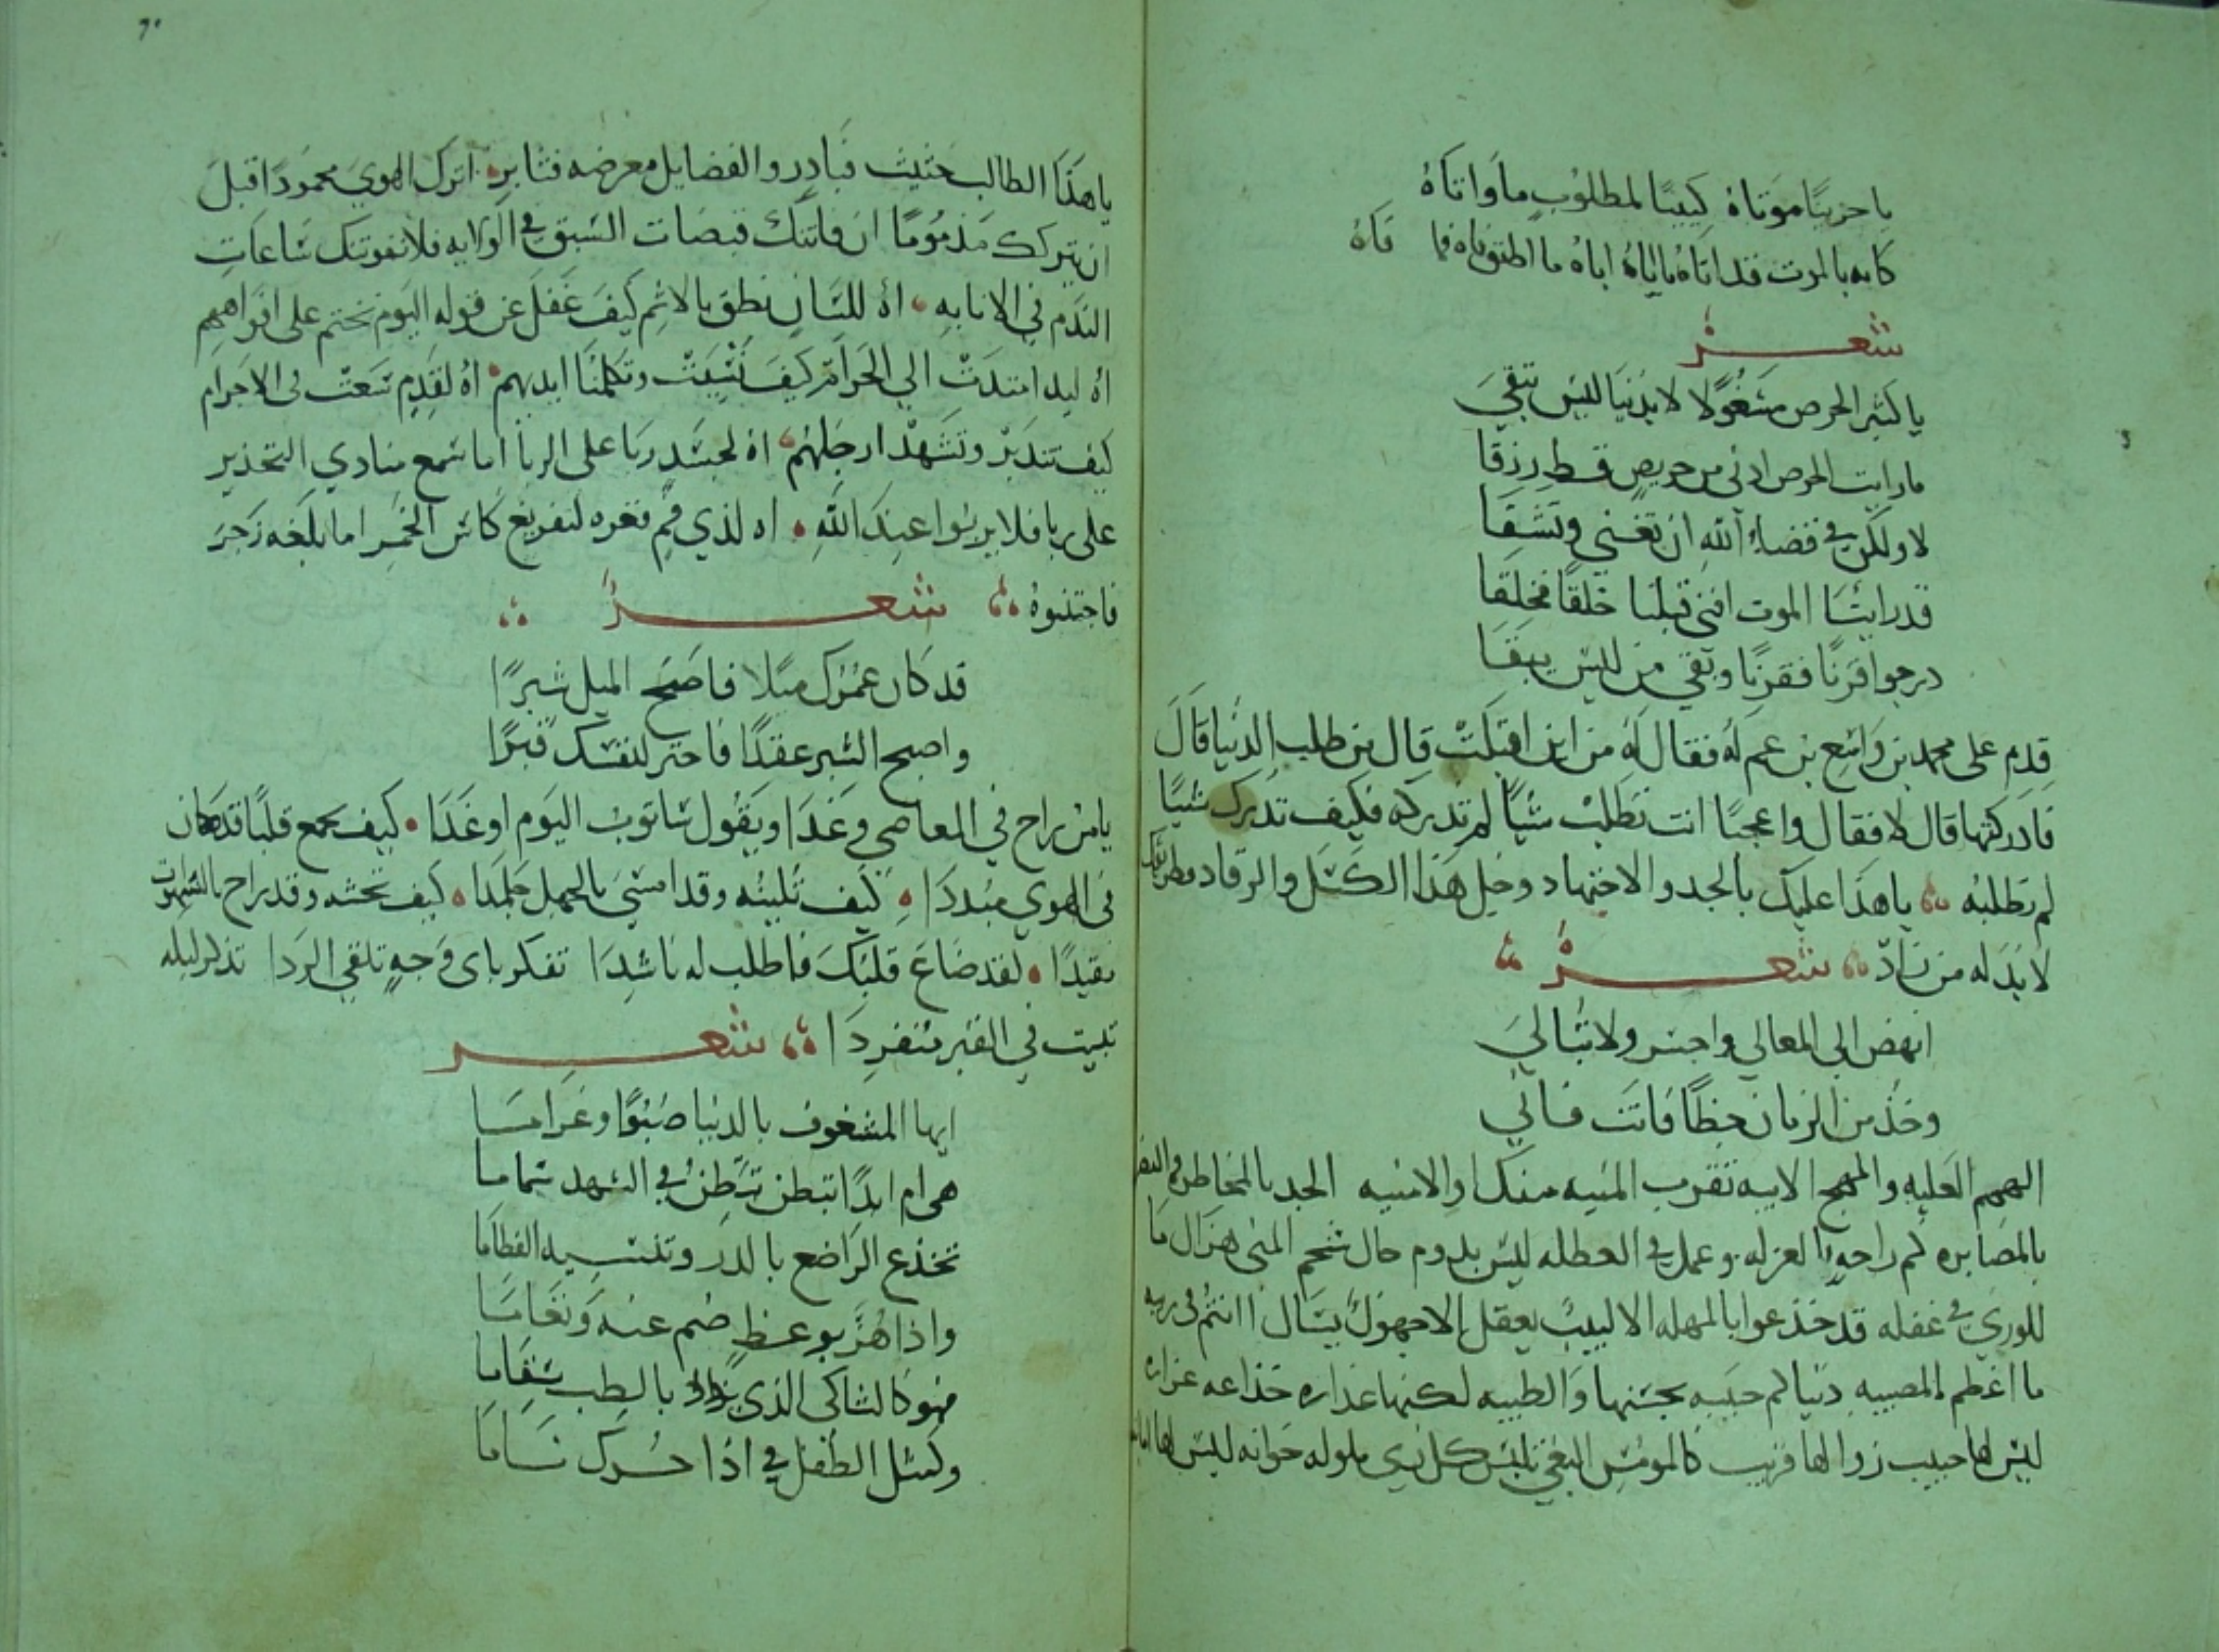 يا حزينًا موتاهُ كئيبًا لمطلوبٍ ما واتاهُ
كانه بالموت قد اتاهُ اباهُ ما اطبق فاه فما فاهُ
شعر
يا كثير الحرص مشغولا لا بدنيا ليس تبقي
ما رايت الحرص ادنى من حريصٍ قط رزقا
لا ولكن في قضاء الله ان تغني وتشقا
قد راينا الموت افنى قبلنا خلقًا فخلقا
درجوا قرنًا فقرنًا وبقي من ليس يبقا
قدم على محمد بن واسع بن عم له فقال له من اين اقبلت قال من طلب الدنيا قال
فادركتها قال لا فقال واعجبًا انت تطلب شيًا لم تدركه فكيف تدرك شيًا
لم تطلبه يا هذا عليك بالجد والاجتهاد وخل هذا الكسل والرقاد فطريقك
لا بد له من زاد شعر
انهض الى المعالي واجسر ولا تبالي
وخذ من الزمان حظًا فانت فاني
الهمم العليه والمهج الابيه تقرب المنيه منك او الامنيه الجد بالمخاطره والنصر
بالمصابره كم راحه بالعزله وعمل في العطله ليس يدوم حال شحم المنى هزال ما
للوري في غفله قد خدعوا بالمهله الا لبيبٌ يعقل الا جهولٌ يسال اانتم في ريبه
ما اعظم المصيبه دنياكم حبيبه بحسنها والطيبه لكنها غداره خداعه غراره
ليس لها حبيب زوالها قريب كالمومس البغي تلبس كل زي ملوله خوانه ليس لها امانه
٦٠
يا هذا الطالب حثيث فبادر والفضايل معرضه فثابر اترك الهوي محمودًا قبل
ان يتركك مذمومًا ان فاتتك قبضات السبق في الولايه فلا تفوتنك ساعات
الندم في الانابه اه للسان نطق بالاثم كيف غفل عن قوله اليوم نختم على افواههم
اه ليد امتدت الي الحرام كيف نسيت وتكلمنا ايديهم اه لقدم سعت في الاجرام
كيف تتدبر وتشهد ارجلهم اه لجسد ربا على الربا اما سمع منادي التحذير
على ربا فلا يربوا عند الله اه لذي فم فغره لتفريغ كاس الخمر اما بلغه زجر
فاجتنبوهُ شعر
قد كان عمرك ميلا فاصبح الميل شبرًا
واصبح الشبر عقدًا فاحفر لنفسك قبرًا
يا من راح في المعاصي وغدا ويقول ساتوب اليوم او غدا كيف يجمع قلبًا قد كان
في الهوي مبددا كيف تلينه وقد امسى بالجهل جلمدا كيف تحثه وقد راح بالشهوات
مقيدًا لقد ضاع قلبك فاطلب له ناشدا تفكر باى وجهٍ تلقي الردا تذكر ليله
تبيت في القبر منفردا شعر
ايها المشغوف بالدنيا صبوًا وغراما
هي ام ابدًا تبطن في الشهد سماما
تخدع الراضع بالدر وتنسيه الفطاما
واذا هُزَّ بوعظٍ صم عنه وتعاما
فهو كالشاكى الذى زاد بالطب سقاما
وكمثل الطفل في اذا حرك ناما